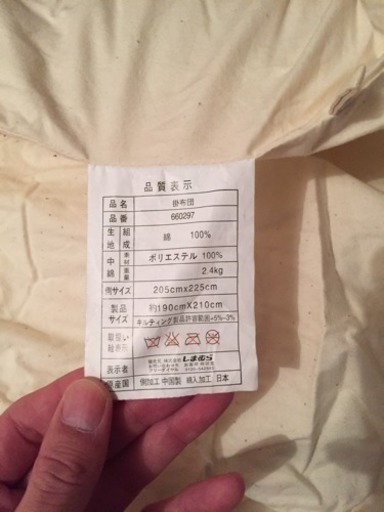 品質表示
品名 掛布団
品番 660297
生地 組成 綿 100%
中綿 素材 ポリエステル 100%
重量 2.4kg
側サイズ 205cmx225cm
製品サイズ 約190cmX210cm
キルティング製品許容範囲+5%-3%
取扱い絵表示
表示者 株式会社 しまむら
原産国 側加工 中国製 綿入加工 日本